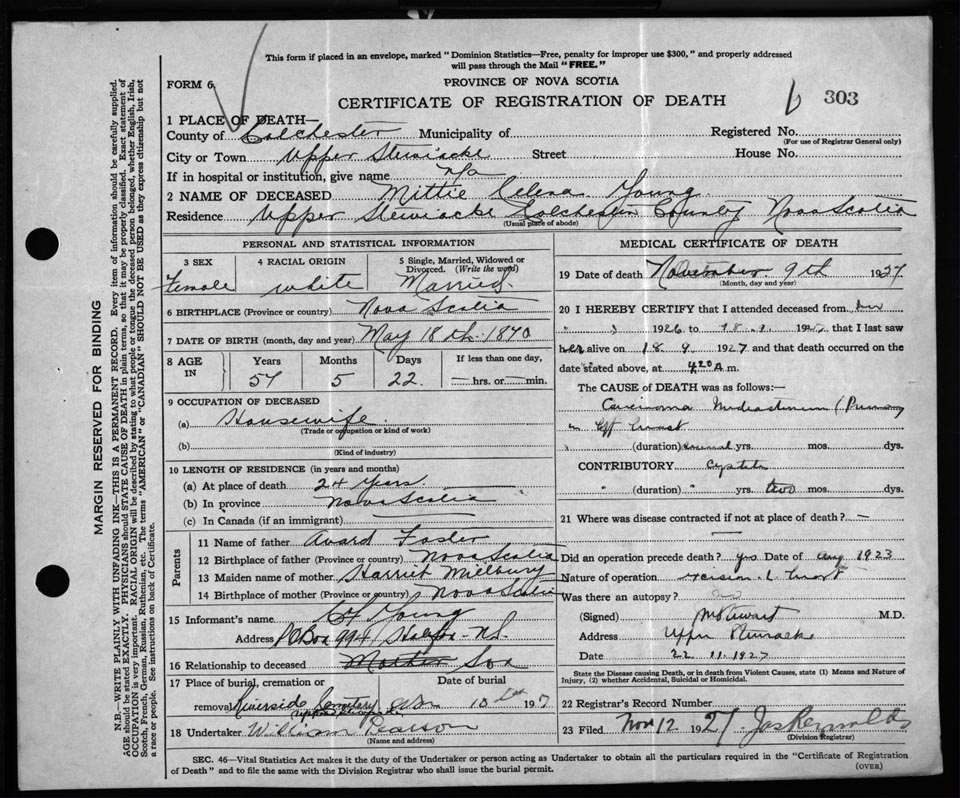 This form if placed in an envelope, marked "Dominion Statistics—Free, penalty for improper use $300," and properly addressed
will pass through the Mail "FREE."
FORM 6
PROVINCE OF NOVA SCOTIA
CERTIFICATE OF REGISTRATION OF DEATH
303
1 PLACE OF DEATH—
County of Colchester Municipality of Registered No.
(For use of Registrar General only)
City or Town Upper Stewiacke Street House No.
If in hospital or institution, give name No
2 NAME OF DECEASED Mittie Celena Young
Residence Upper Stewiacke Colchester County Nova Scotia
(Usual place of abode)
PERSONAL AND STATISTICAL INFORMATION
3 SEX 4 RACIAL ORIGIN 5 Single, Married, Widowed or Divorced. (Write the word)
Female White Married
6 BIRTHPLACE (Province or country) Nova Scotia
7 DATE OF BIRTH (month, day and year) May 18th 1870
8 AGE IN Years Months Days If less than one day,
57 5 22 hrs. or min.
9 OCCUPATION OF DECEASED
(a) Housewife
(Trade or occupation or kind of work)
(b)
(Kind of industry)
10 LENGTH OF RESIDENCE (in years and months)
(a) At place of death 24 years
(b) In province Nova Scotia
(c) In Canada (if an immigrant)
Parents
11 Name of father Avard Foster
12 Birthplace of father (Province or country) Nova Scotia
13 Maiden name of mother Harriet Milbury
14 Birthplace of mother (Province or country) Nova Scotia
15 Informant's name Young
Address P.O. Box 994 Halifax N.S.
16 Relationship to deceased Mother Son
17 Place of burial, cremation or removal Date of burial
Riverside Cemetery
18 Undertaker William Pearson
(Name and address)
MEDICAL CERTIFICATE OF DEATH
19 Date of death November 9th 1927
(Month, day and year)
20 I HEREBY CERTIFY that I attended deceased from
1926 to that I last saw
her alive on 18 9 1927 and that death occurred on the
date stated above, at 4.20 A m.
The CAUSE OF DEATH was as follows:—
Carcinoma Mediastinum (Primary
in left breast
(duration) several yrs. mos. dys.
CONTRIBUTORY
(duration) yrs. two mos. dys.
21 Where was disease contracted if not at place of death? —
Did an operation precede death? yes Date of Aug 1923
Nature of operation excision L. breast
Was there an autopsy? no
(Signed) M.D.
Address Upper Stewiacke
Date 22 11.1927
State the Disease causing Death, or in death from Violent Causes, state (1) Means and Nature of
Injury, (2) whether Accidental, Suicidal or Homicidal.
22 Registrar's Record Number
23 Filed Nov 12 1927 Jas Reynolds
(Division Registrar)
SEC. 46—Vital Statistics Act makes it the duty of the Undertaker or person acting as Undertaker to obtain all the particulars required in the "Certificate of Registration
of Death" and to file the same with the Division Registrar who shall issue the burial permit.
(OVER)
MARGIN RESERVED FOR BINDING
N.B.—WRITE PLAINLY WITH UNFADING INK—THIS IS A PERMANENT RECORD. Every item of information should be carefully supplied.
AGE should be stated EXACTLY. PHYSICIANS should STATE CAUSE OF DEATH in plain terms, so that it may be properly classified. Exact statement of
OCCUPATION is very important. RACIAL ORIGIN will be described by stating to what people or tongue the deceased person belonged, whether English, Irish,
Scotch, French, German, Russian, Ruthenian, etc. The terms "AMERICAN" or "CANADIAN" SHOULD NOT BE USED as they express citizenship but not
a race or people. See instructions on back of Certificate.